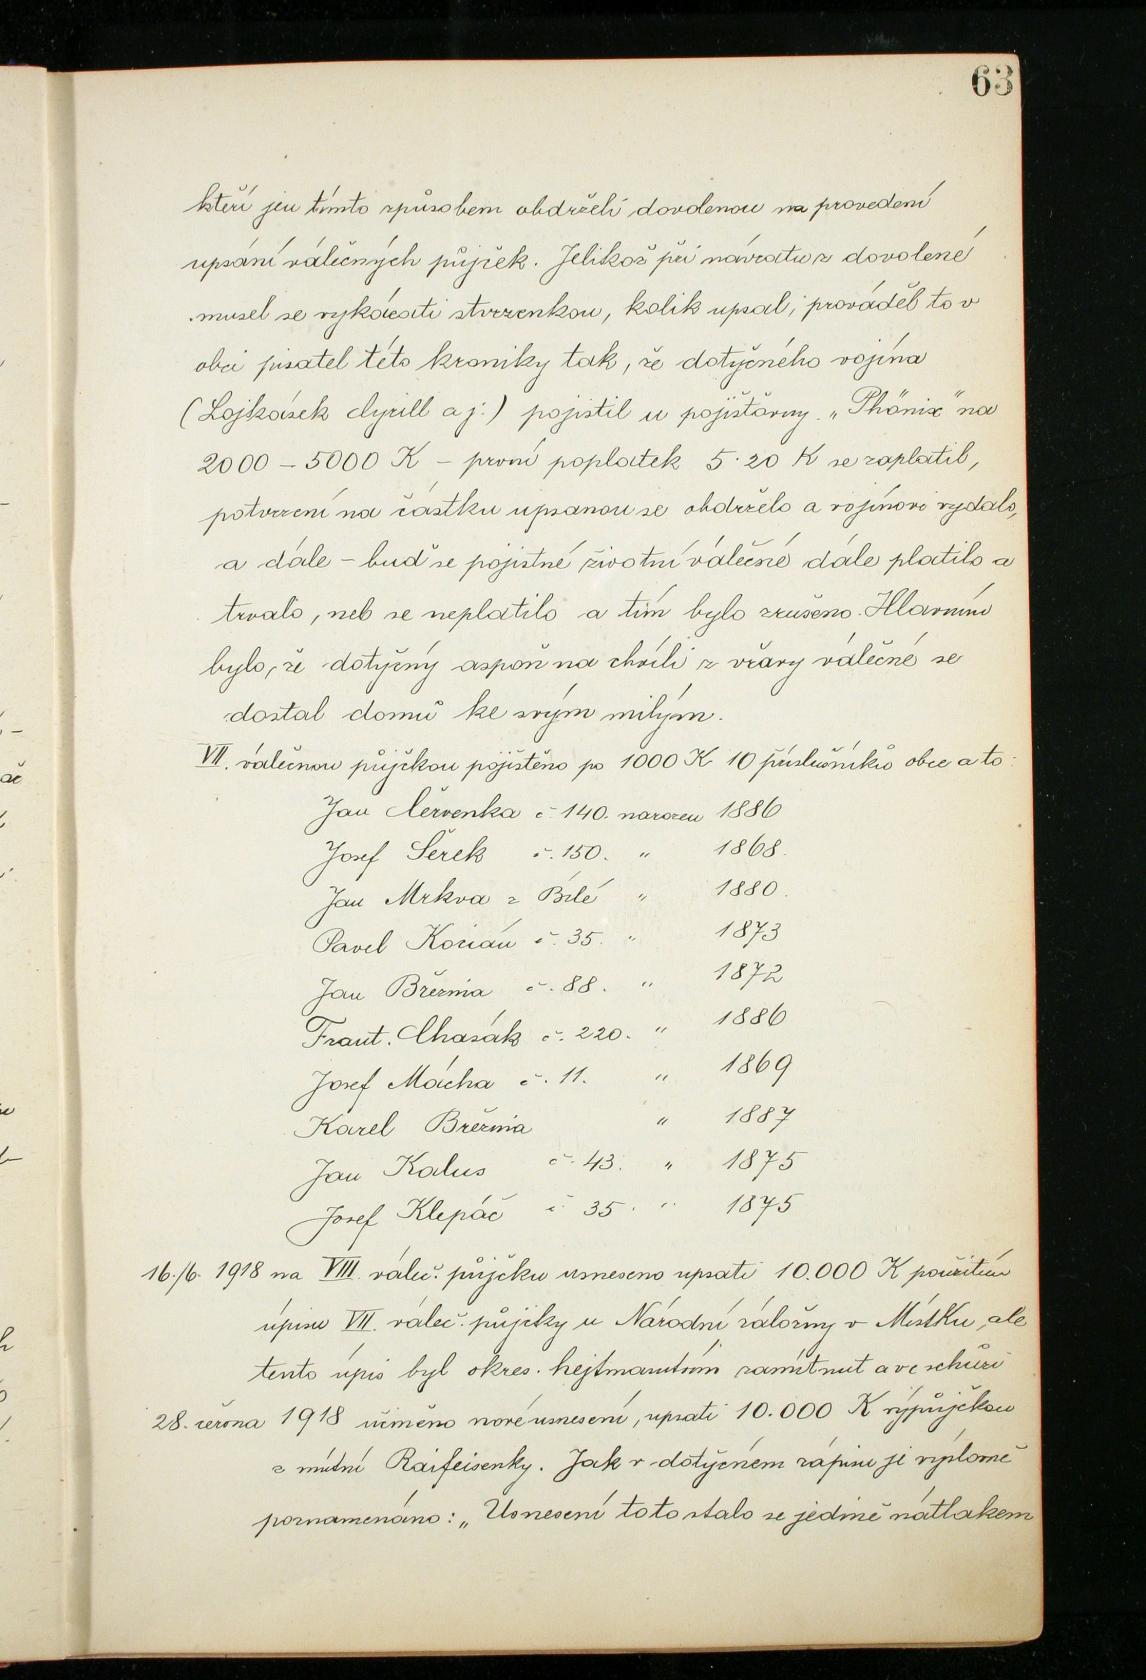 63
kteří jen tímto způsobem obdrželi dovolenou na provedení
upsání válečných půjček. Jelikož při návratu z dovolené
musel se vykázati stvrzenkou, kolik upsal, prováděl to v
obci pisatel této kroniky tak, že dotyčného vojína
(Lojkásek Cyrill a j.) pojistil u pojišťovny „Phönix" na
2000 – 5000 K – první poplatek 5·20 K se zaplatil,
potvrzení na částku upsanou se obdrželo a vojínovi vydalo,
a dále – buď se pojistné životní válečné dále platilo a
trvalo, neb se neplatilo a tím bylo zrušeno. Hlavním
bylo, že dotyčný aspoň na chvíli z vřavy válečné se
dostal domů ke svým milým.
VII. válečnou půjčkou pojištěno po 1000 K 10 příslušníků obce a to:
Jan Červenka č 140. narozen 1886
Josef Šěrek č. 150. " 1868.
Jan Mrkva z Bílé " 1880.
Pavel Korián č. 35. " 1873
Jan Březina č. 88. " 1872
Frant. Chasák č. 220. " 1886
Josef Mácha č. 11. " 1869
Karel Březina " 1887
Jan Kalus č. 43. " 1875
Josef Klepáč č 35. " 1875
16./6. 1918 na VIII. váleč. půjčku usneseno upsati 10.000 K použitím
úpisu VII. váleč. půjčky u Národní záložny v Místku, ale
tento úpis byl okres. hejtmanstvím zamítnut a ve schůzi
28. června 1918 učiněno nové usnesení, upsati 10.000 K výpůjčkou
z místní Raifeisenky. Jak v dotyčném zápisu je výslovně
poznamenáno: „Usnesení toto stalo se jedině nátlakem